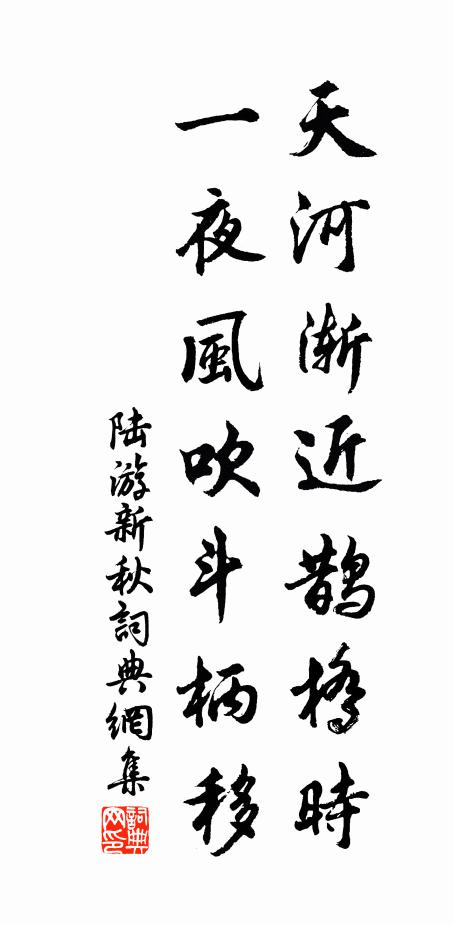 天河漸近鵲橋時
一夜風吹斗柄移
陆游新秋詞典網集
詞典網印